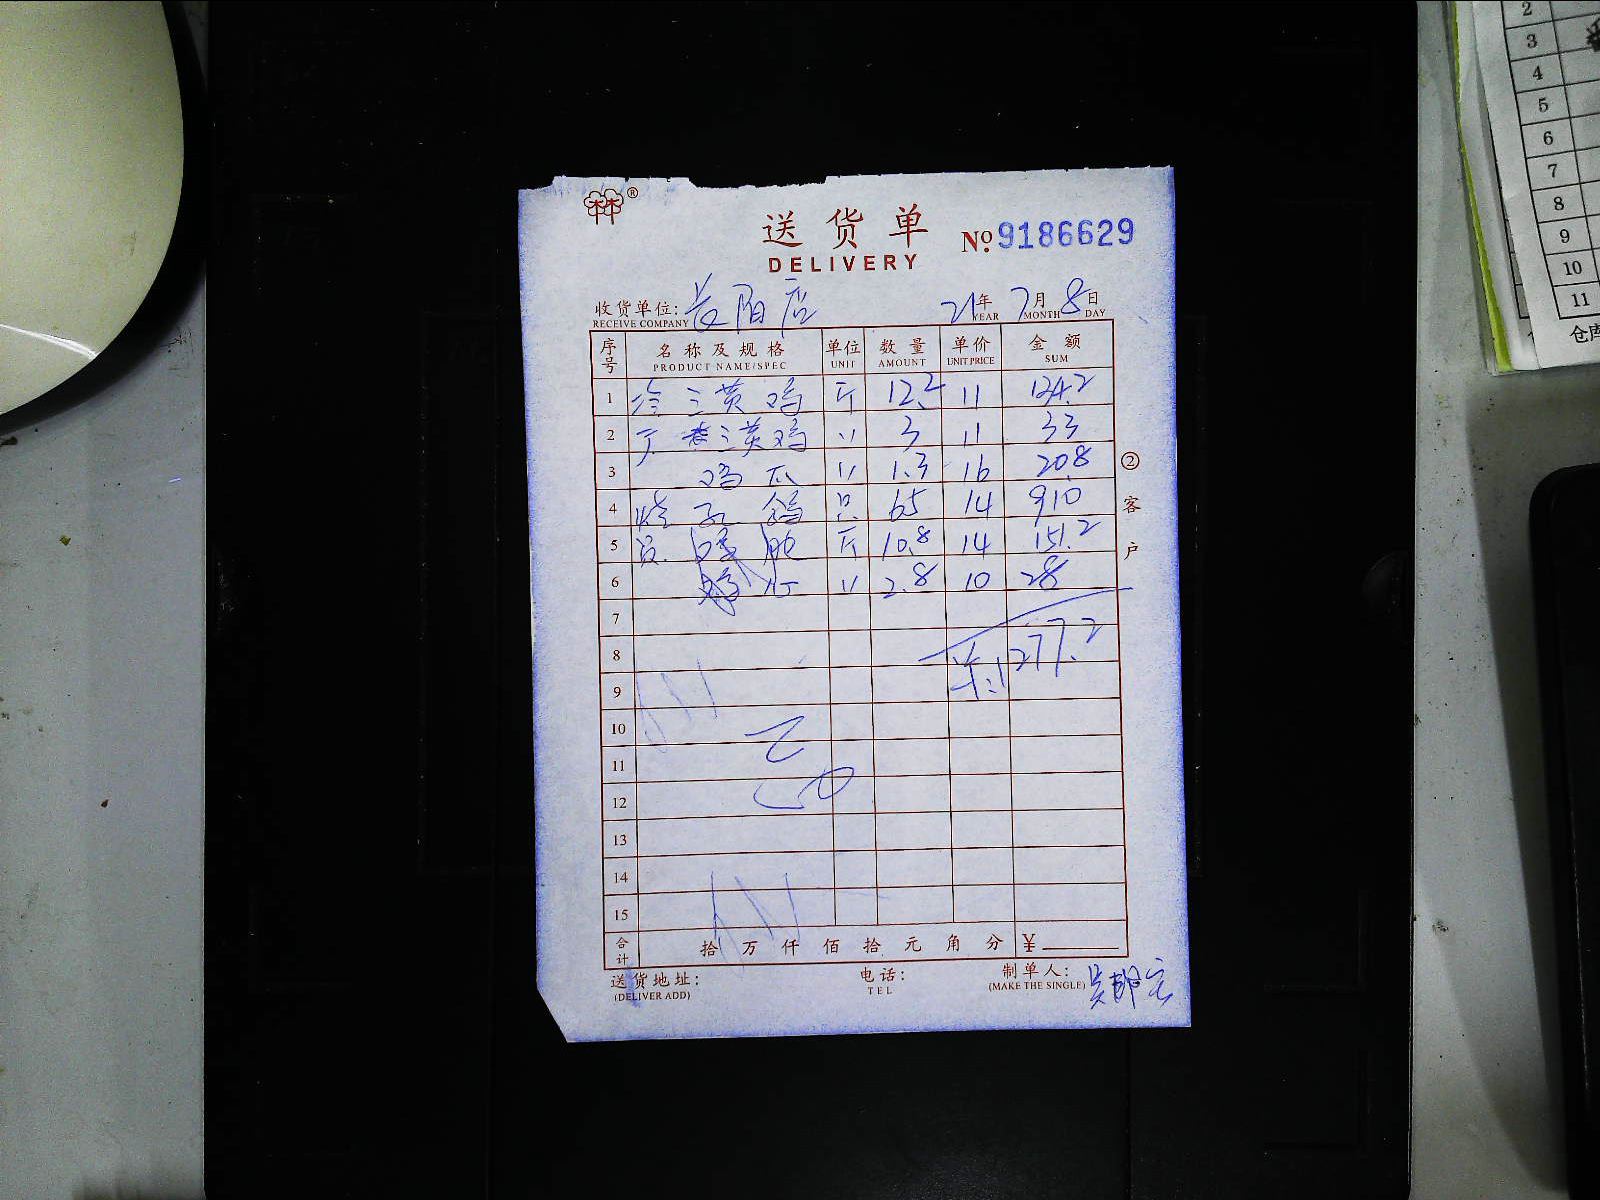 林®
送货单 №9186629
DELIVERY
收货单位: 长阳店 21年 7月 8日
RECEIVE COMPANY YEAR MONTH DAY
序号 名称及规格 单位 数量 单价 金额
PRODUCT NAME/SPEC UNIT AMOUNT UNIT PRICE SUM
1 三黄鸡 斤 12.2 11 134.2
2 三黄鸡 〃 3 11 33
3 鸡爪 〃 1.3 16 20.8
4 烧 乳鸽 只 65 14 910
5 斤 10.8 14 151.2
6 〃 2.8 10 28
7
8 1277.2
9
10
11
12
13
14
15
合计 拾 万 仟 佰 拾 元 角 分 ¥
送货地址: 电话: 制单人:
(DELIVER ADD) TEL (MAKE THE SINGLE)
②客户
2
3
4
5
6
7
8
9
10
11
仓库